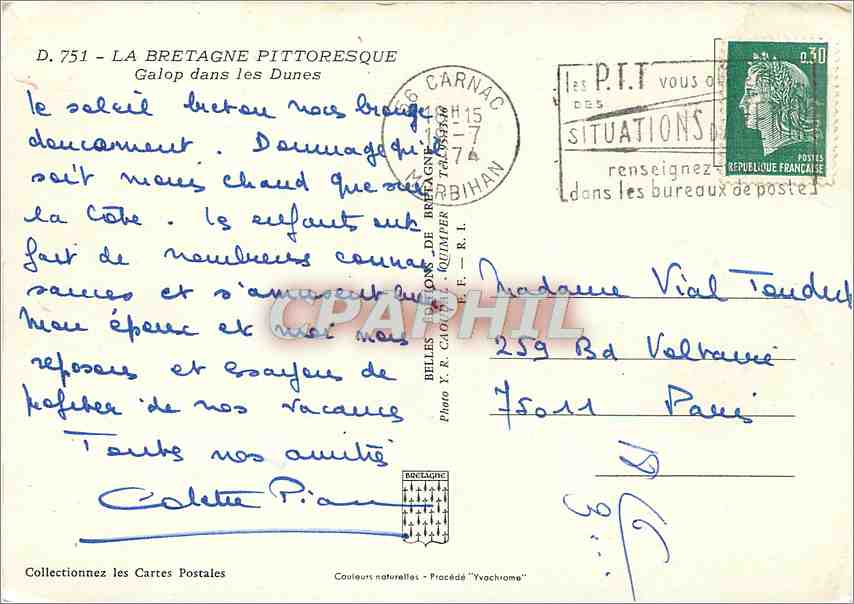 D. 751 - LA BRETAGNE PITTORESQUE
Galop dans les Dunes
le soleil breton nous bronze
doucement. Dommage qu'il
soit moins chaud que sur
la Côte. les enfants ont
fait de nombreuses connai
sances et s'amusent
Mon époux et moi nous
reposons et essayons de
profiter de nos vacances
Toutes nos amitiés
Colette
BRETAGNE
Collectionnez les Cartes Postales
Couleurs naturelles - Procédé "Yvochrome"
BELLES EDITIONS DE BRETAGNE
Photo Y. R. CAOUDAL - QUIMPER Tél.
F. - R. I.
56 CARNAC
18H15
-7
74
MORBIHAN
les P.T.T vous
DES
SITUATIONS
renseignez-
dans les bureaux de poste
0,30
POSTES
REPUBLIQUE FRANÇAISE
Madame Vial
259 Bd Voltaire
75011 Paris
CPAPHIL